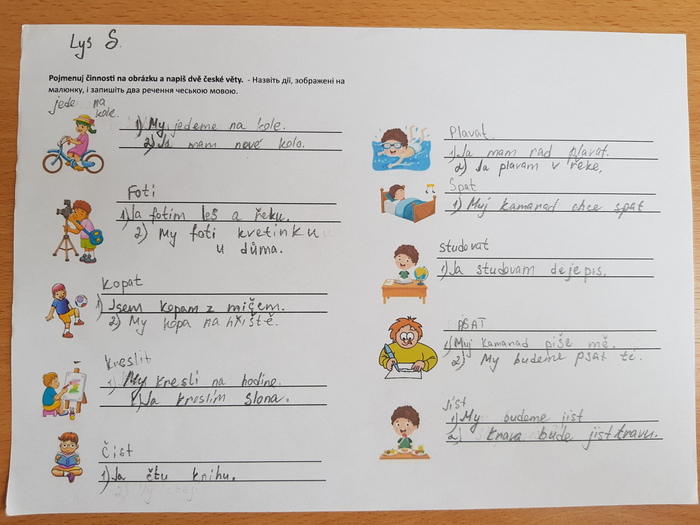 Lys S.
Pojmenuj činnosti na obrázku a napiš dvě české věty. - Назвіть дії, зображені на
малюнку, і запишіть два речення чеською мовою.
jede na
kole.
1) My jedeme na kole.
2) Ja mam nové kolo.
Fotí
1) Ja fotim les a řeku.
2) My foti kvetinku
u důma.
Kopat
1) Jsem kopam z míčem.
2) My kopa na hřiště.
Kreslit
1) My kresli na hodine.
2) Ja kreslim slona.
Číst
1) Ja čtu knihu.
Plavat
1) Ja mam rad plavat.
2) Ja plavam v řeke.
Spat
1) Muj kamarad chce spat
Studovat
1) Ja studovam dejepis.
PSAT
1) Muj kamarad piše mě.
2) My budeme psat té.
Jist
1) My budeme jist
2) Krava bude jist travu.